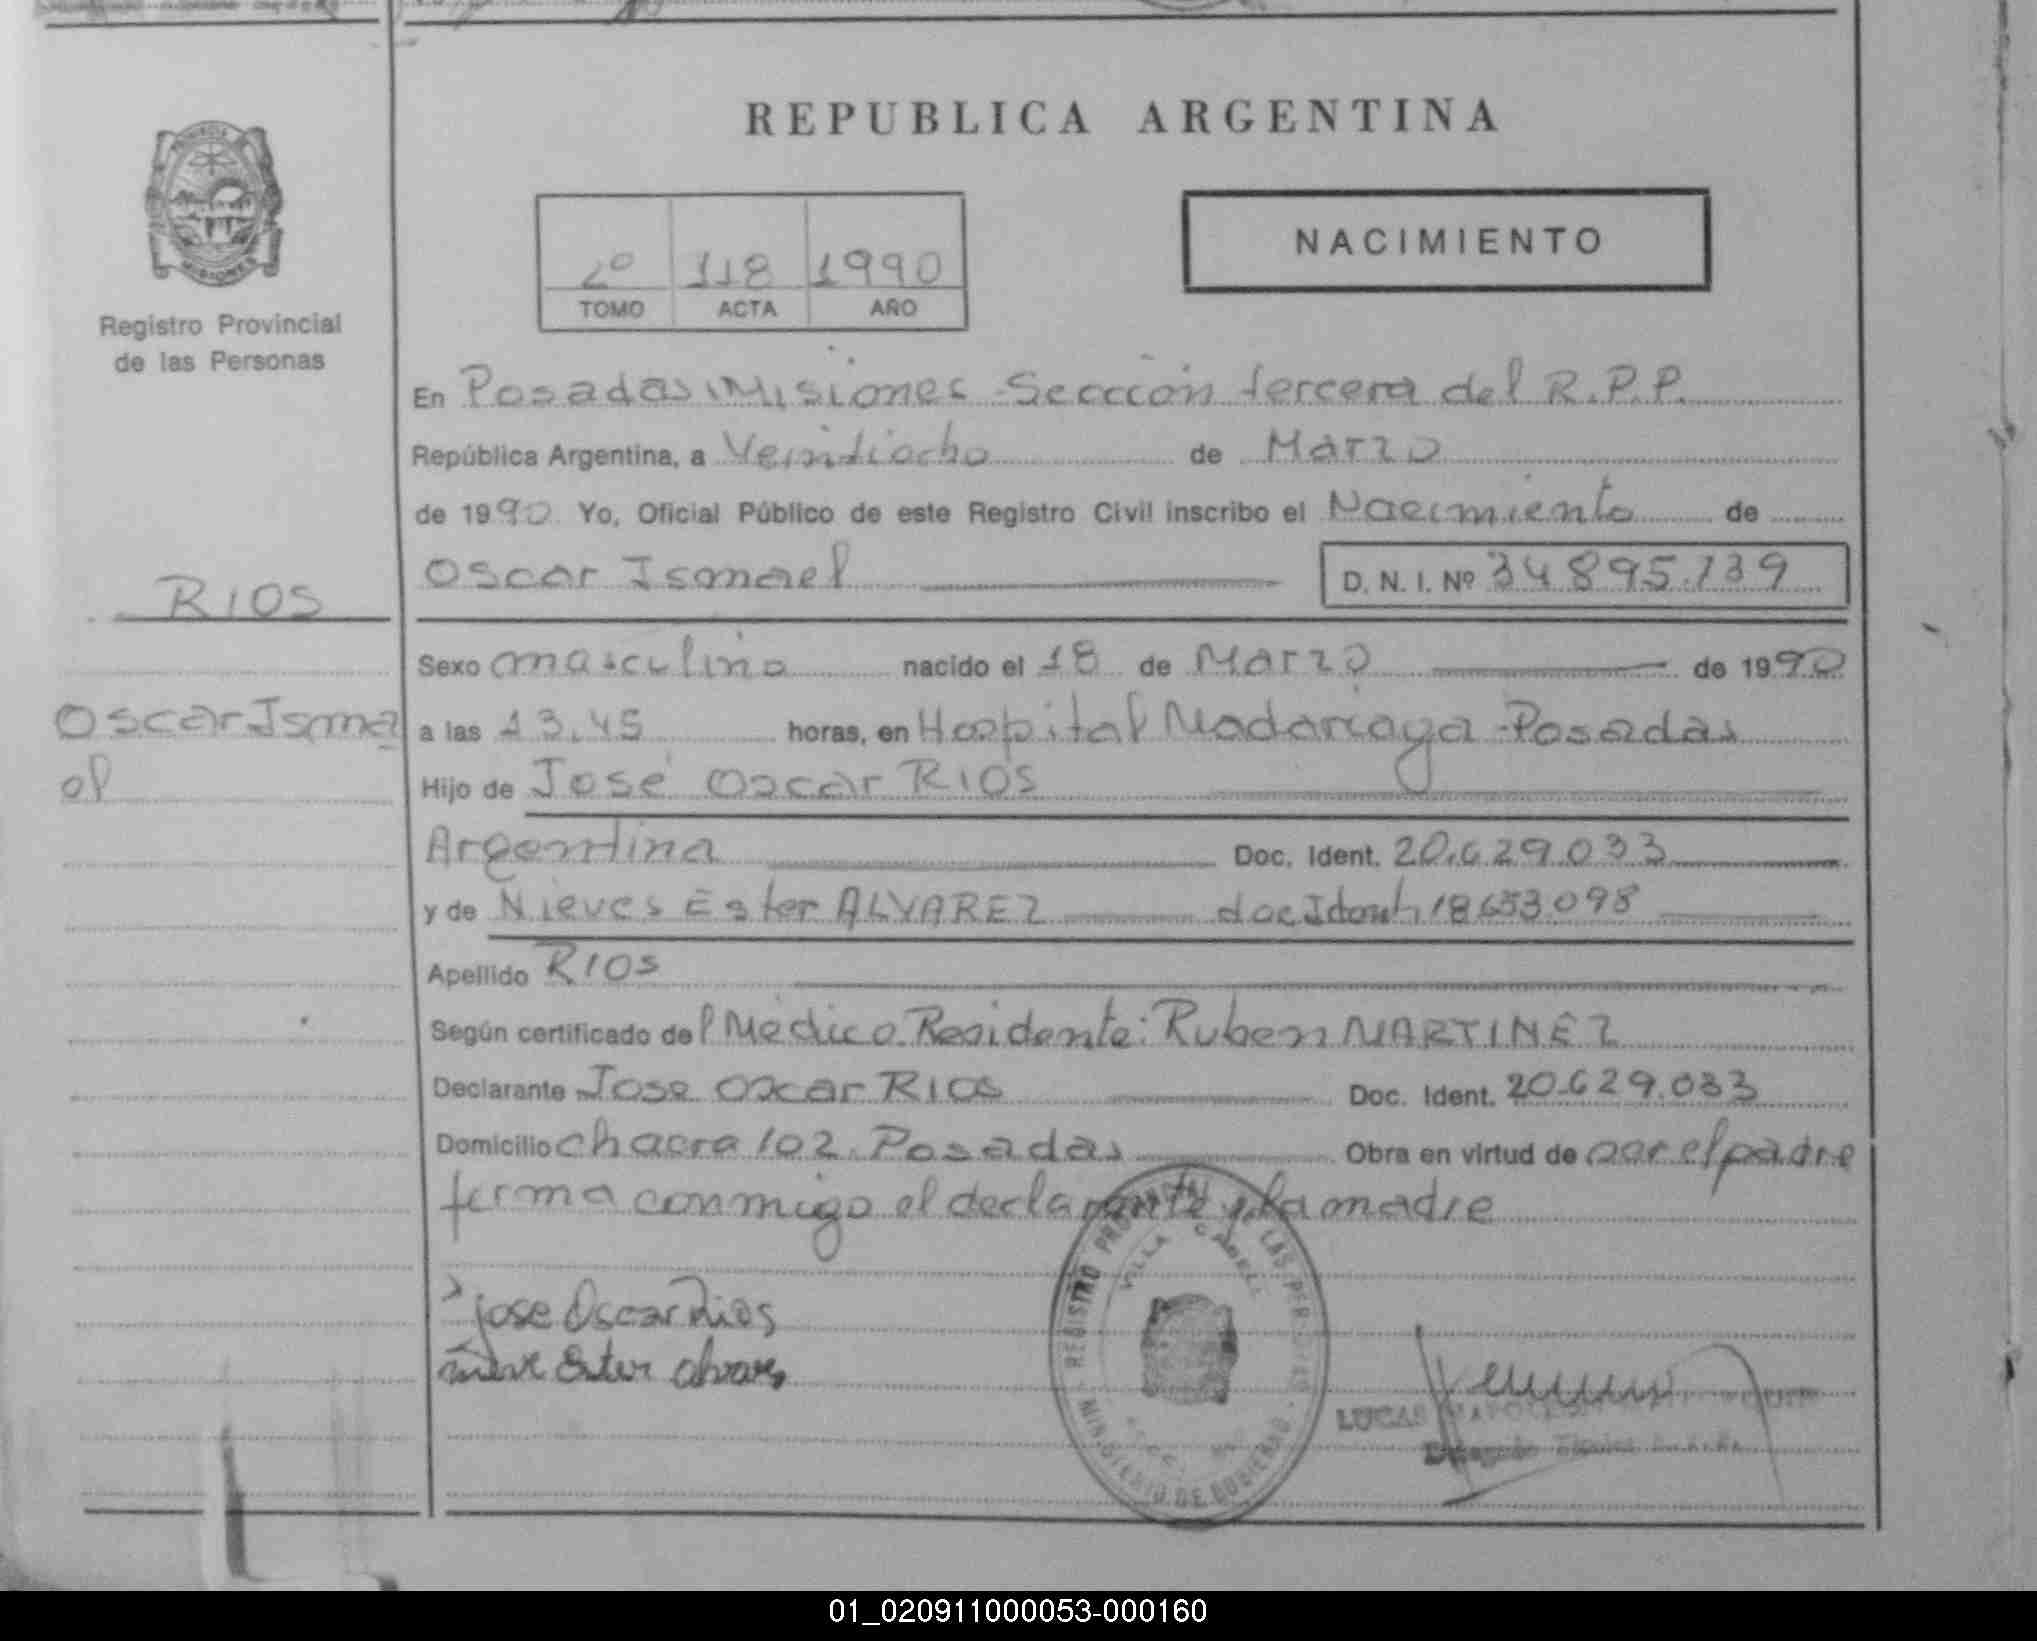 REPUBLICA ARGENTINA
MISIONES
Registro Provincial
de las Personas
NACIMIENTO
2º 118 1990
TOMO ACTA AÑO
En Posadas Misiones Sección tercera del R.P.P.
República Argentina, a Veintiocho de Marzo
de 1990 Yo, Oficial Público de este Registro Civil inscribo el Nacimiento de
Oscar Ismael D. N. I. Nº 34895.139
RIOS
Sexo masculino nacido el 18 de Marzo de 1990
Oscar Isma
el
a las 13,45 horas, en Hospital Madariaga - Posadas
Hijo de José Oscar RIOS
Argentina Doc. Ident. 20.629.033
y de Nieves Ester ALVAREZ doc Ident 18653.098
Apellido RIOS
Según certificado del Médico Residente: Ruben MARTINEZ
Declarante Jose Oscar RIOS Doc. Ident. 20.629.033
Domicilio chacra 102. Posadas Obra en virtud de ser el padre
ferma conmigo el declarante y la madre
REGISTRO PROVINCIAL DE LAS PER
VILLA CABELL
MINISTERIO DE GOBIERNO
jose Oscar Rios
nieve Ester alvares
LUCAS
Delegado Titular
01_020911000053-000160